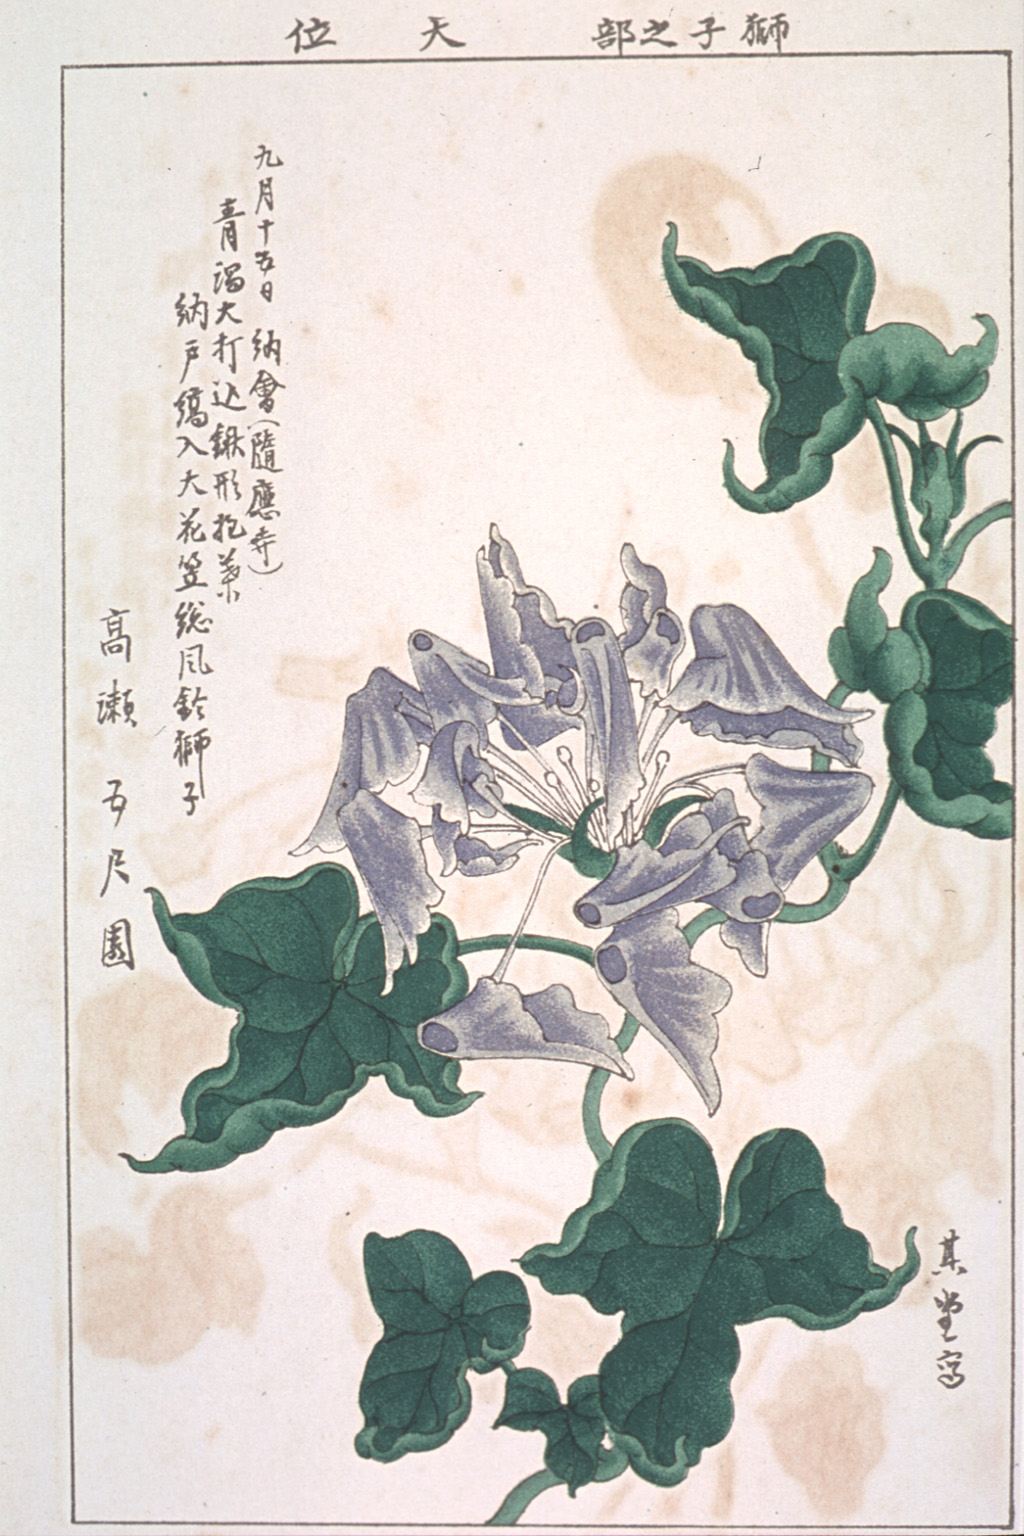 獅子之部 天位
九月十五日 納會(隨應寺)
青濁大打込鍬形抱葉
納戸縞入大花笠総風鈴獅子
高瀬五尺園
其堂寫